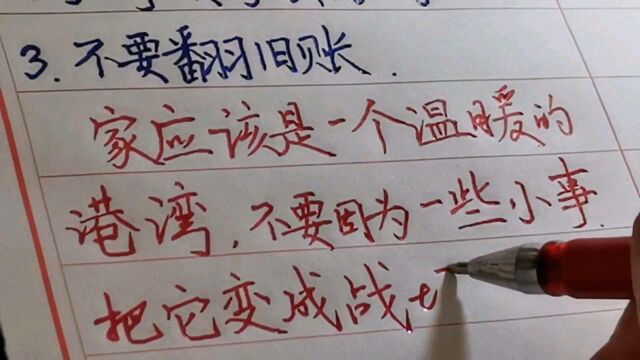 3.不要翻旧账.
家应该是一个温暖的
港湾,不要因为一些小事
把它变成战